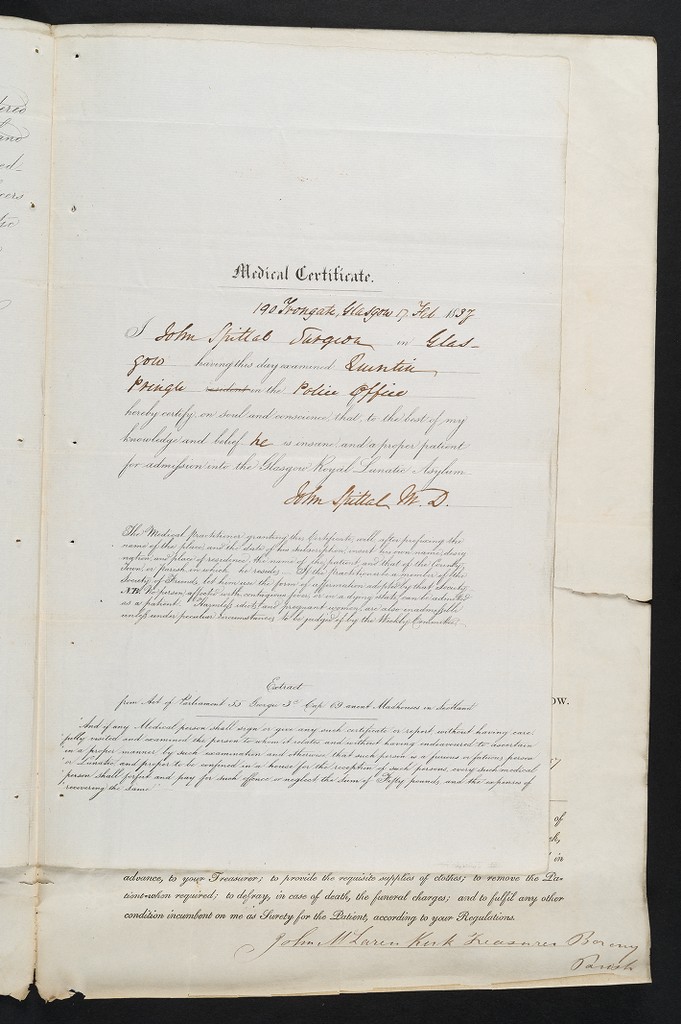 Medical Certificate.
190 Trongate, Glasgow 17 Feb 1837
I John Spittal Surgeon in Glas-
gow having this day examined Quintin
Pringle resident in the Police Office
hereby certify, on soul and conscience, that, to the best of my
knowledge and belief he is insane, and a proper patient
for admission into the Glasgow Royal Lunatic Asylum.
John Spittal M.D.
The Medical Practitioner granting this Certificate, will, after prefixing the
name of the place, and the date of his subscription, insert his own name, desig
nation, and place of residence, the name of the patient, and that of the County,
Town, or parish, in which he resides. If the Practitioner be a member of the
Society of Friends, let him use the form of affirmation adopted by that Society.
N.B. No person affected with contagious fever, or in a dying state, can be admitted
as a patient. Harmless idiots, and pregnant women, are also inadmissible
unless under peculiar circumstances, to be judged of by the Weekly Committee.
Extract
from Act of Parliament 55 Georgii 3ii Cap. 69 anent Madhouses in Scotland.
"And if any Medical person shall sign or give any such certificate or report, without having care
fully visited and examined the person to whom it relates and without having endeavoured to ascertain
in a proper manner by such examination and otherwise that such person is a furious or fatuous person
or Lunatic, and proper to be confined in a house for the reception of such persons, every such medical
person shall forfeit and pay for such offence or neglect the sum of Fifty pounds, and the expenses of
recovering the same."
OW.
of
in
advance, to your Treasurer; to provide the requisite supplies of clothes; to remove the Pa-
tient when required; to defray, in case of death, the funeral charges; and to fulfil any other
condition incumbent on me as Surety for the Patient, according to your Regulations.
John McLaren Kirk Treasurer Barony
Parish